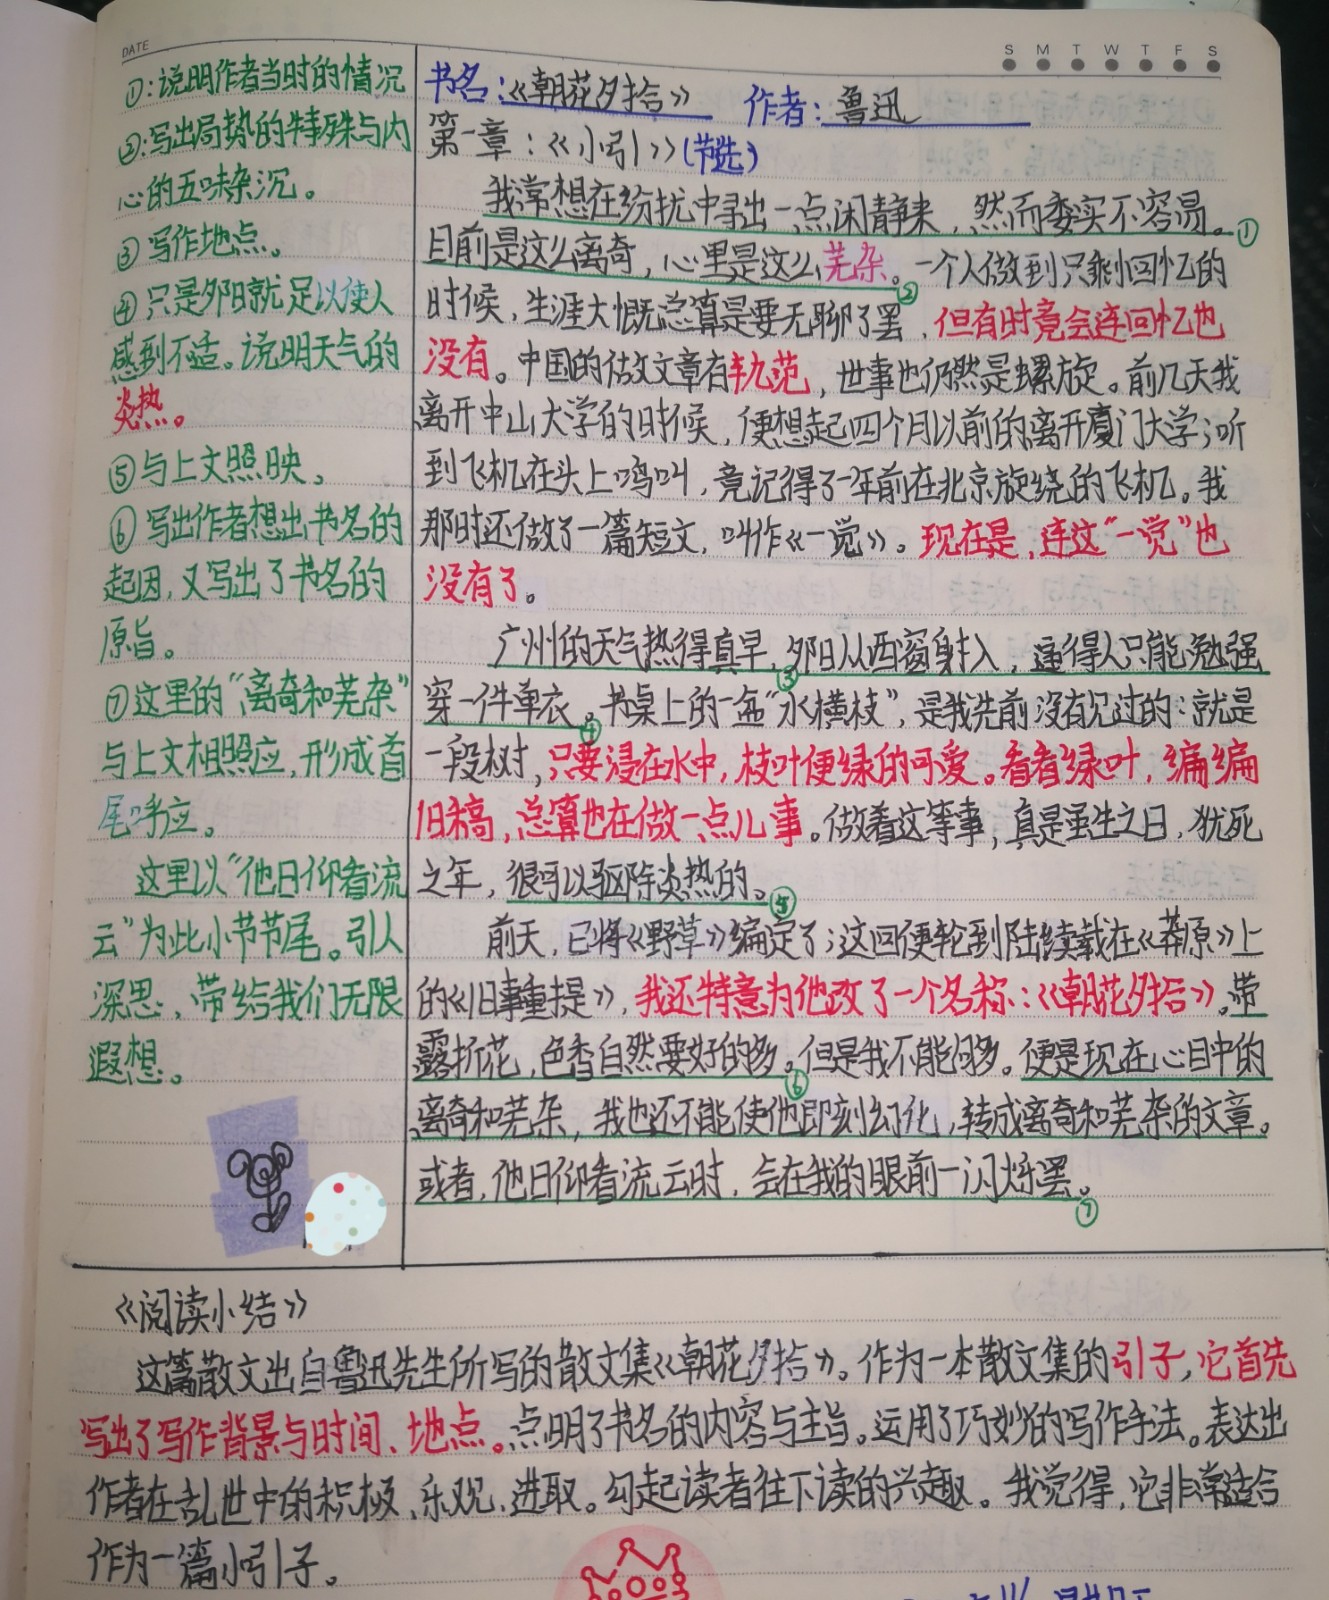 DATE
S M T W T F S
①:说明作者当时的情况
②:写出局势的特殊与内
心的五味杂沉。
③写作地点。
④只是夕阳就足以使人
感到不适。说明天气的
炎热。
⑤与上文照映。
⑥写出作者想出书名的
起因,又写出了书名的
原旨。
⑦这里的“离奇和芜杂”
与上文相照应,形成首
尾呼应。
这里以“他日仰看流
云”为此小节节尾。引人
深思,带给我们无限
遐想。
书名:《朝花夕拾》 作者:鲁迅
第一章:《小引》(节选)
我常想在纷扰中寻出一点闲静来,然而委实不容易。①
目前是这么离奇,心里是这么芜杂。②一个人做到只剩回忆的
时候,生涯大概总算是要无聊了罢,但有时竟会连回忆也
没有。中国的做文章有轨范,世事也仍然是螺旋。前几天我
离开中山大学的时候,便想起四个月以前的离开厦门大学;听
到飞机在头上鸣叫,竟记得了一年前在北京旋绕的飞机。我
那时还做了一篇短文,叫作《一觉》。现在是,连这“一觉”也
没有了。
广州的天气热得真早,夕阳从西窗射入,③逼得人只能勉强
穿一件单衣。④书桌上的一盆“水横枝”,是我先前没有见过的:就是
一段树,只要浸在水中,枝叶便绿的可爱。看看绿叶,编编
旧稿,总算也在做一点儿事。做着这等事,真是虽生之日,犹死
之年,很可以驱除炎热的。⑤
前天,已将《野草》编定了;这回便轮到陆续载在《莽原》上
的《旧事重提》,我还特意为他改了一个名称:《朝花夕拾》。带
露折花,色香自然要好的多。⑥但是我不能够。便是现在心目中的
离奇和芜杂,我也还不能使他即刻幻化,转成离奇和芜杂的文章。
或者,他日仰看流云时,会在我的眼前一闪烁罢。⑦
《阅读小结》
这篇散文出自鲁迅先生所写的散文集《朝花夕拾》。作为一本散文集的引子,它首先
写出了写作背景与时间、地点。点明了书名的内容与主旨。运用了巧妙的写作手法。表达出
作者在乱世中的积极、乐观、进取。勾起读者往下读的兴趣。我觉得,它非常适合
作为一篇小引子。